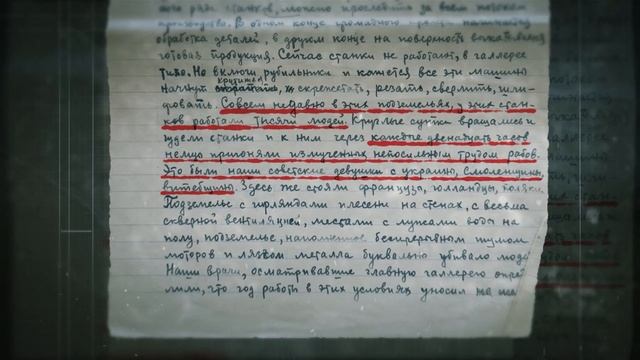 ного ряда станков, можно проследить за всем потоком
производства. В одном конце громадного
обработка деталей, в другом конце на поверхность
готовая продукция. Сейчас станки не работают, в галлерее
тихо. Но включи рубильники и кажется все эти машины
начнут крутиться, скрежетать, резать, сверлить, шли-
фовать. Совсем недавно в этих подземельях, у этих стан-
ков работали тысячи людей. Круглые сутки вращались и
гудели станки и к ним через каждые двенадцать часов
немцы пригоняли измученных непосильным трудом рабов.
Это были наши советские девушки с украины, Смоленщины,
витебщины. Здесь же стояли французы, голландцы, поляки
Подземелье с гирляндами плесени на стенах, с весьма
скверной вентиляцией, местами с лужами воды на
полу, подземелье, наполненное беспрерывным шумом
моторов и лязгом металла буквально убивало люде
Наши врачи, осматривавшие главную галлерею опре
лили, что год работы в этих условиях уносил на